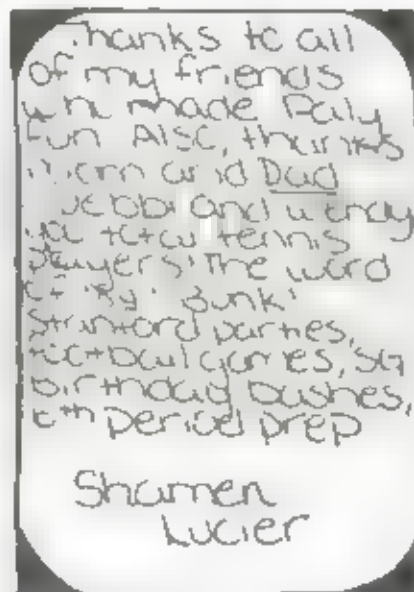 Thanks to all
of my friends
who made Paly
fun Also, thanks
Mom and Dad
and Wendy
tennis
players! The word
"Bunk"
Stanford parties,
football games, SG
birthday bashes,
6th period prep
Shannen
Lucier